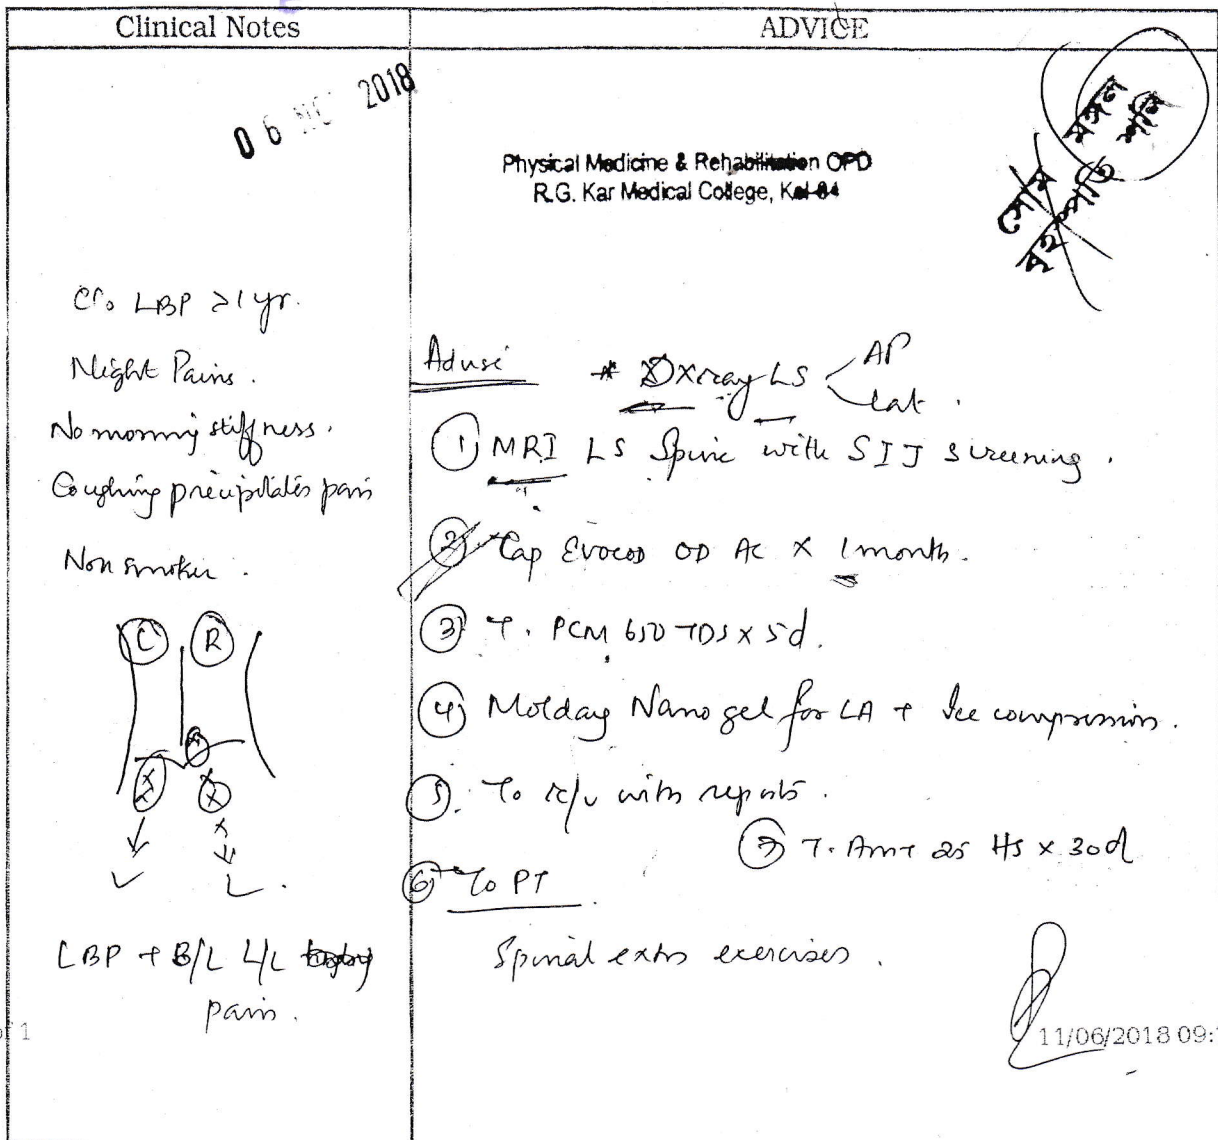 Clinical Notes
ADVICE
06 2018
Physical Medicine & Rehabilitation OPD
R.G. Kar Medical College, Kol-84
মঙ্গল
শনি
সোম
C/o LBP >1 yr.
Night Pains.
No morning stiffness.
Coughing precipitates pain
Non smoker.
L R
LBP + B/L L/L
pain.
Advise * Xray LS AP
lat.
① MRI LS Spine with SIJ screening.
② Cap OD AC x 1 month.
③ T. PCM 650 TDS x 5d.
④ Nano gel for LA + Ice compression.
⑤ To r/v with reports.
⑦ T. Amt 25 HS x 30d
⑥ To PT
Spinal extn exercises.
of 1
11/06/2018 09: